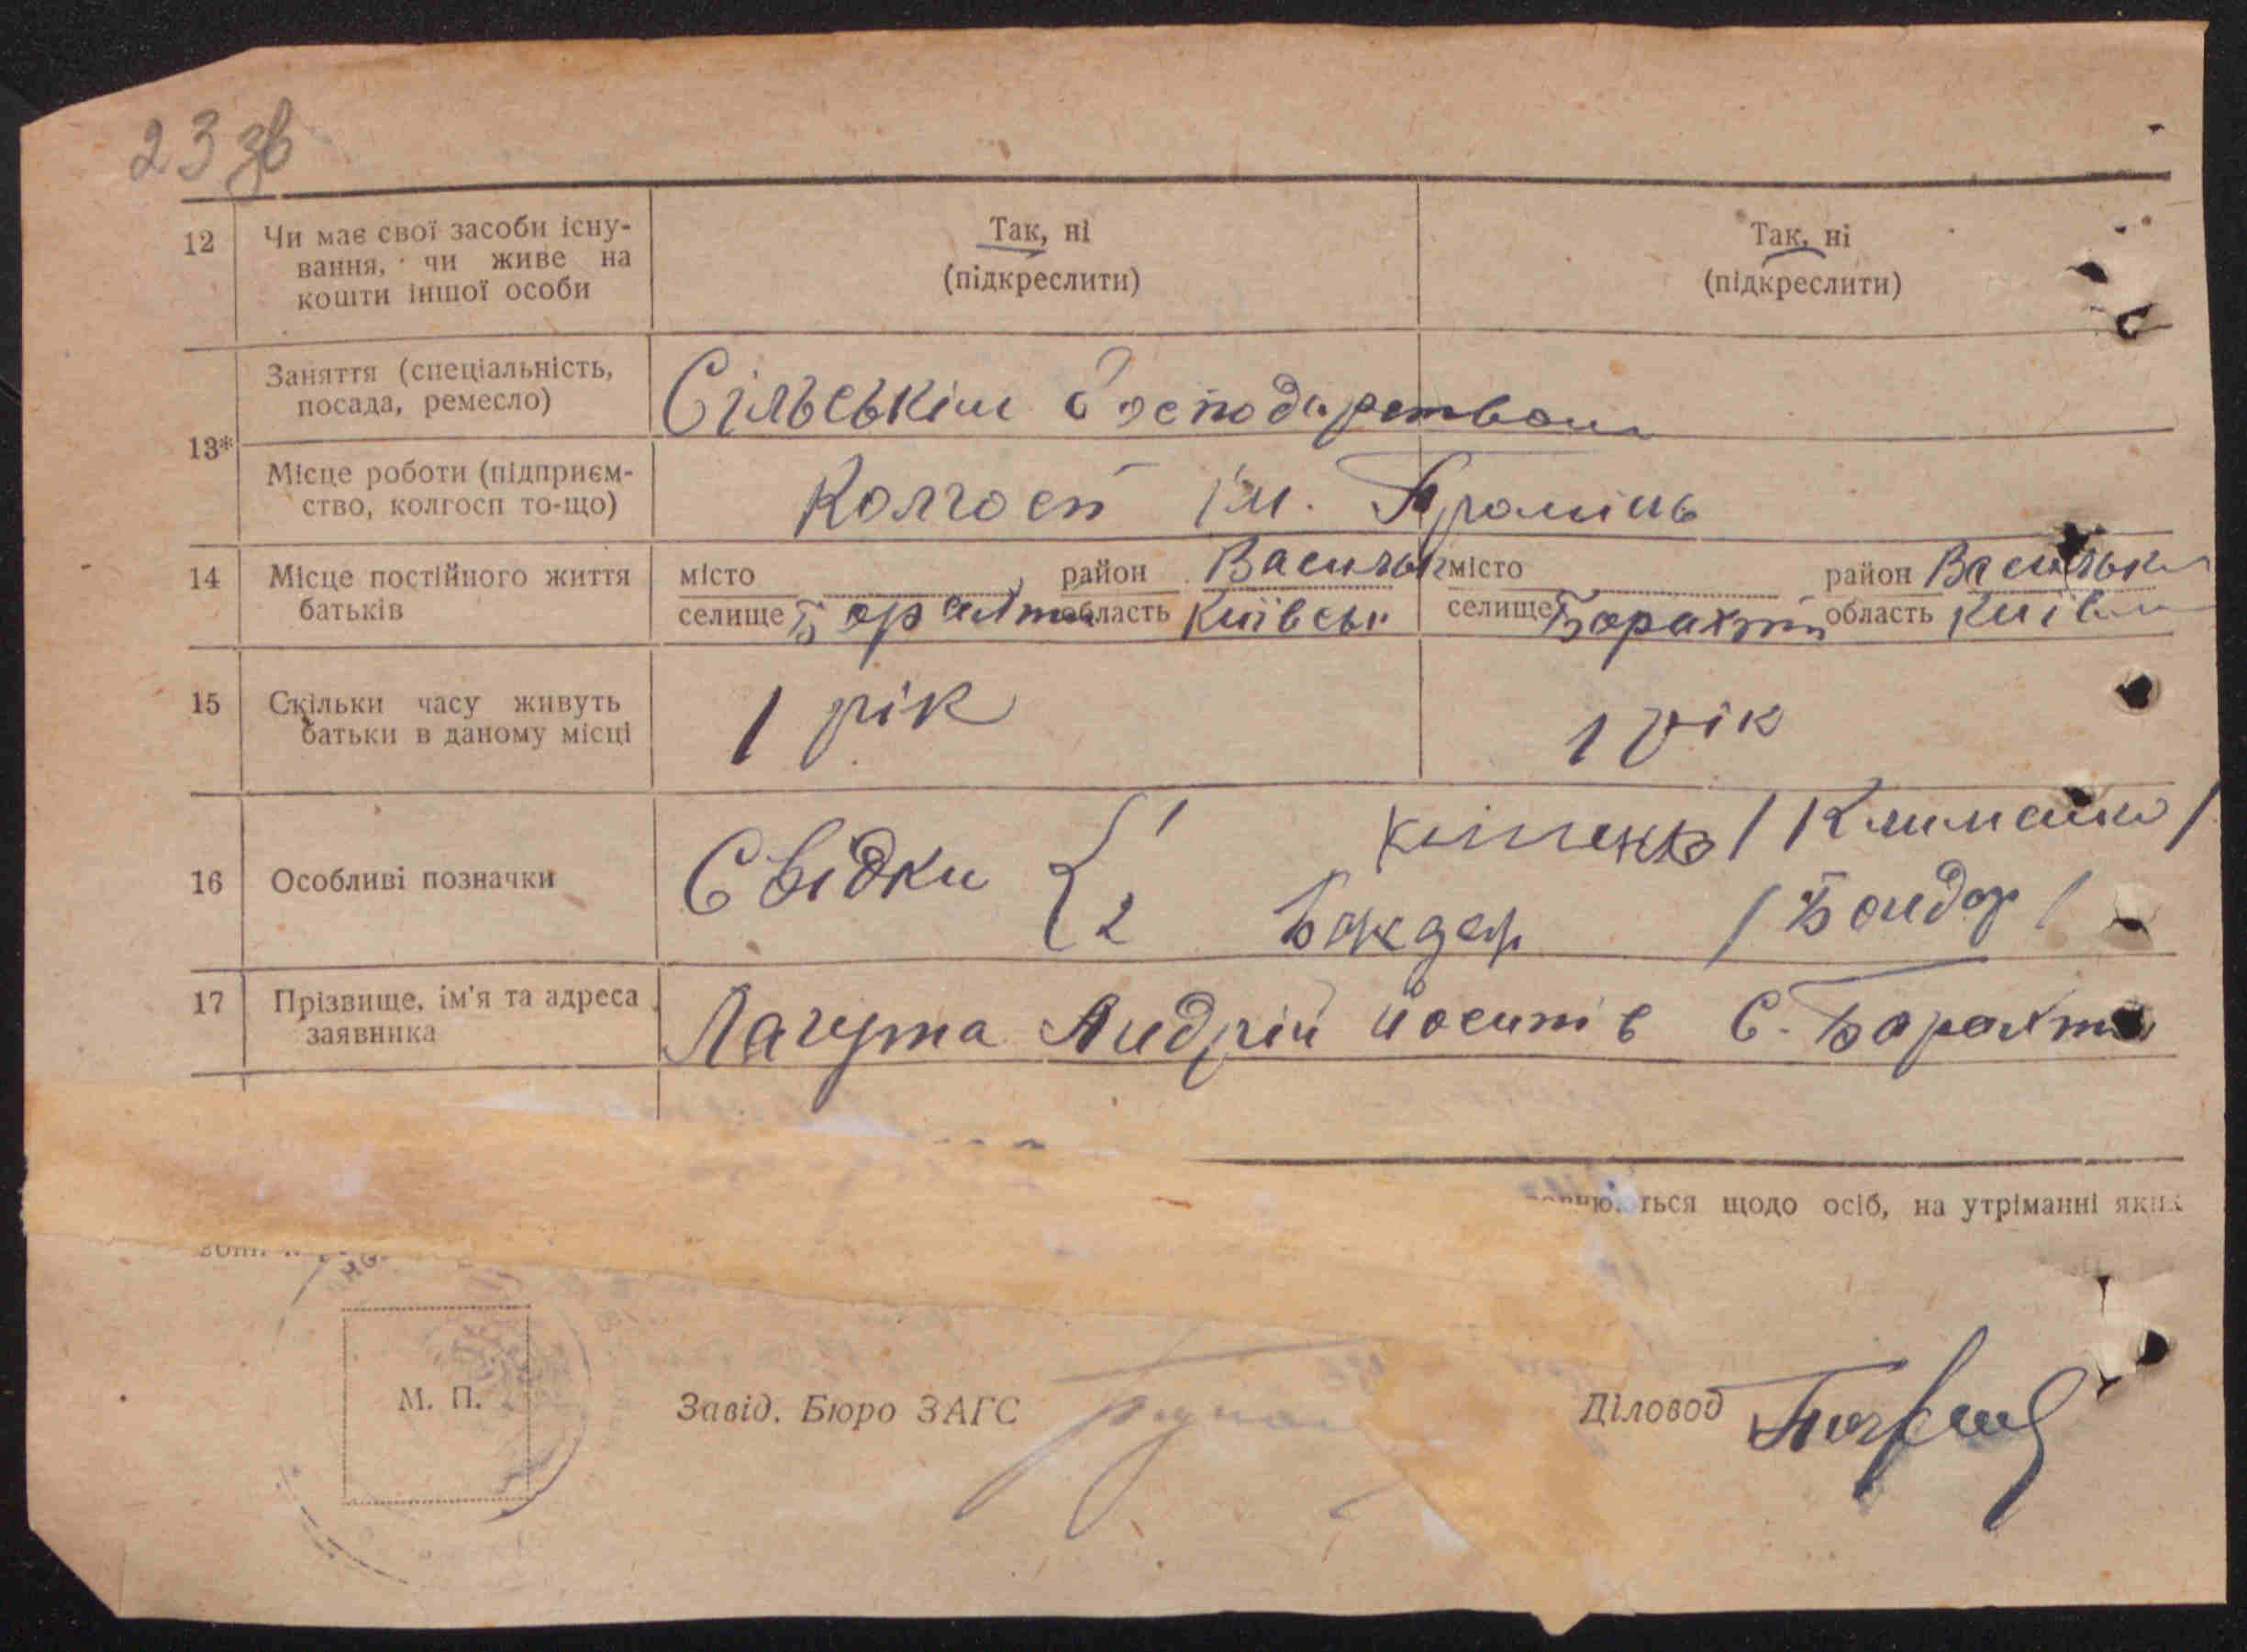 23 зв
12 Чи має свої засоби існу-
вання, чи живе на
кошти іншої особи
Так, ні
(підкреслити)
Так, ні
(підкреслити)
13*
Заняття (спеціальність,
посада, ремесло)
Сільськім Господарством
Місце роботи (підприєм-
ство, колгосп то-що)
Колгосп ім. Промінь
14 Місце постійного життя
батьків
місто район Васильк
селище Борахти область Київськ
місто район Васильк
селище Борахти область Київ
15 Скільки часу живуть
батьки в даному місці
1 рік
1 рік
16 Особливі позначки
Свідки { 1 / Клименко /
2 Бондар / Бондар /
17 Прізвище, ім'я та адреса
заявника
Лагута Андрій Йосипів С. Борахти
ться щодо осіб, на утріманні яких
М. П.
Завід. Бюро ЗАГС
Діловод